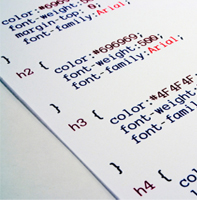 color:#696969;
font-weight:
margin-top: 0;
font-family:Arial;
}
h2 {
color:#696969;
font-weight:500;
font-family:Arial;
}
h3 {
color:#4F4F4F
font-weight:
font-family:
}
h4 {